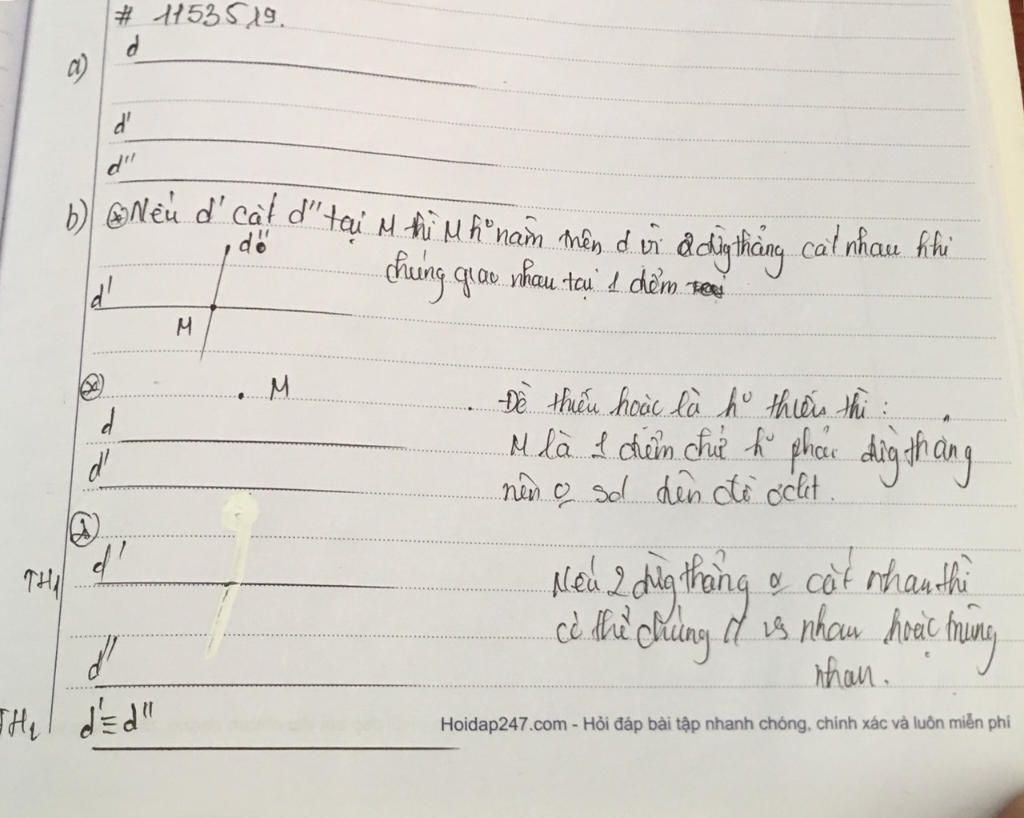 # 1153519.
a) d
d'
d''
b) ⊛ Nếu d' cắt d'' tại M thì M ko nằm trên d vì 2 đg thẳng cắt nhau khi
d''
chúng giao nhau tại 1 điểm
d'
M
⊛ M
- Đề thiếu hoặc là ko thiếu thì:
d
M là 1 điểm chứ ko phải đg thẳng
d'
nên sd đến đề ơclit.
⊛
d'
TH1
Nếu 2 đg thẳng cắt nhau thì
có thể chúng // vs nhau hoặc trùng
d''
nhau.
TH2 d' ≡ d''
Hoidap247.com - Hỏi đáp bài tập nhanh chóng, chính xác và luôn miễn phí